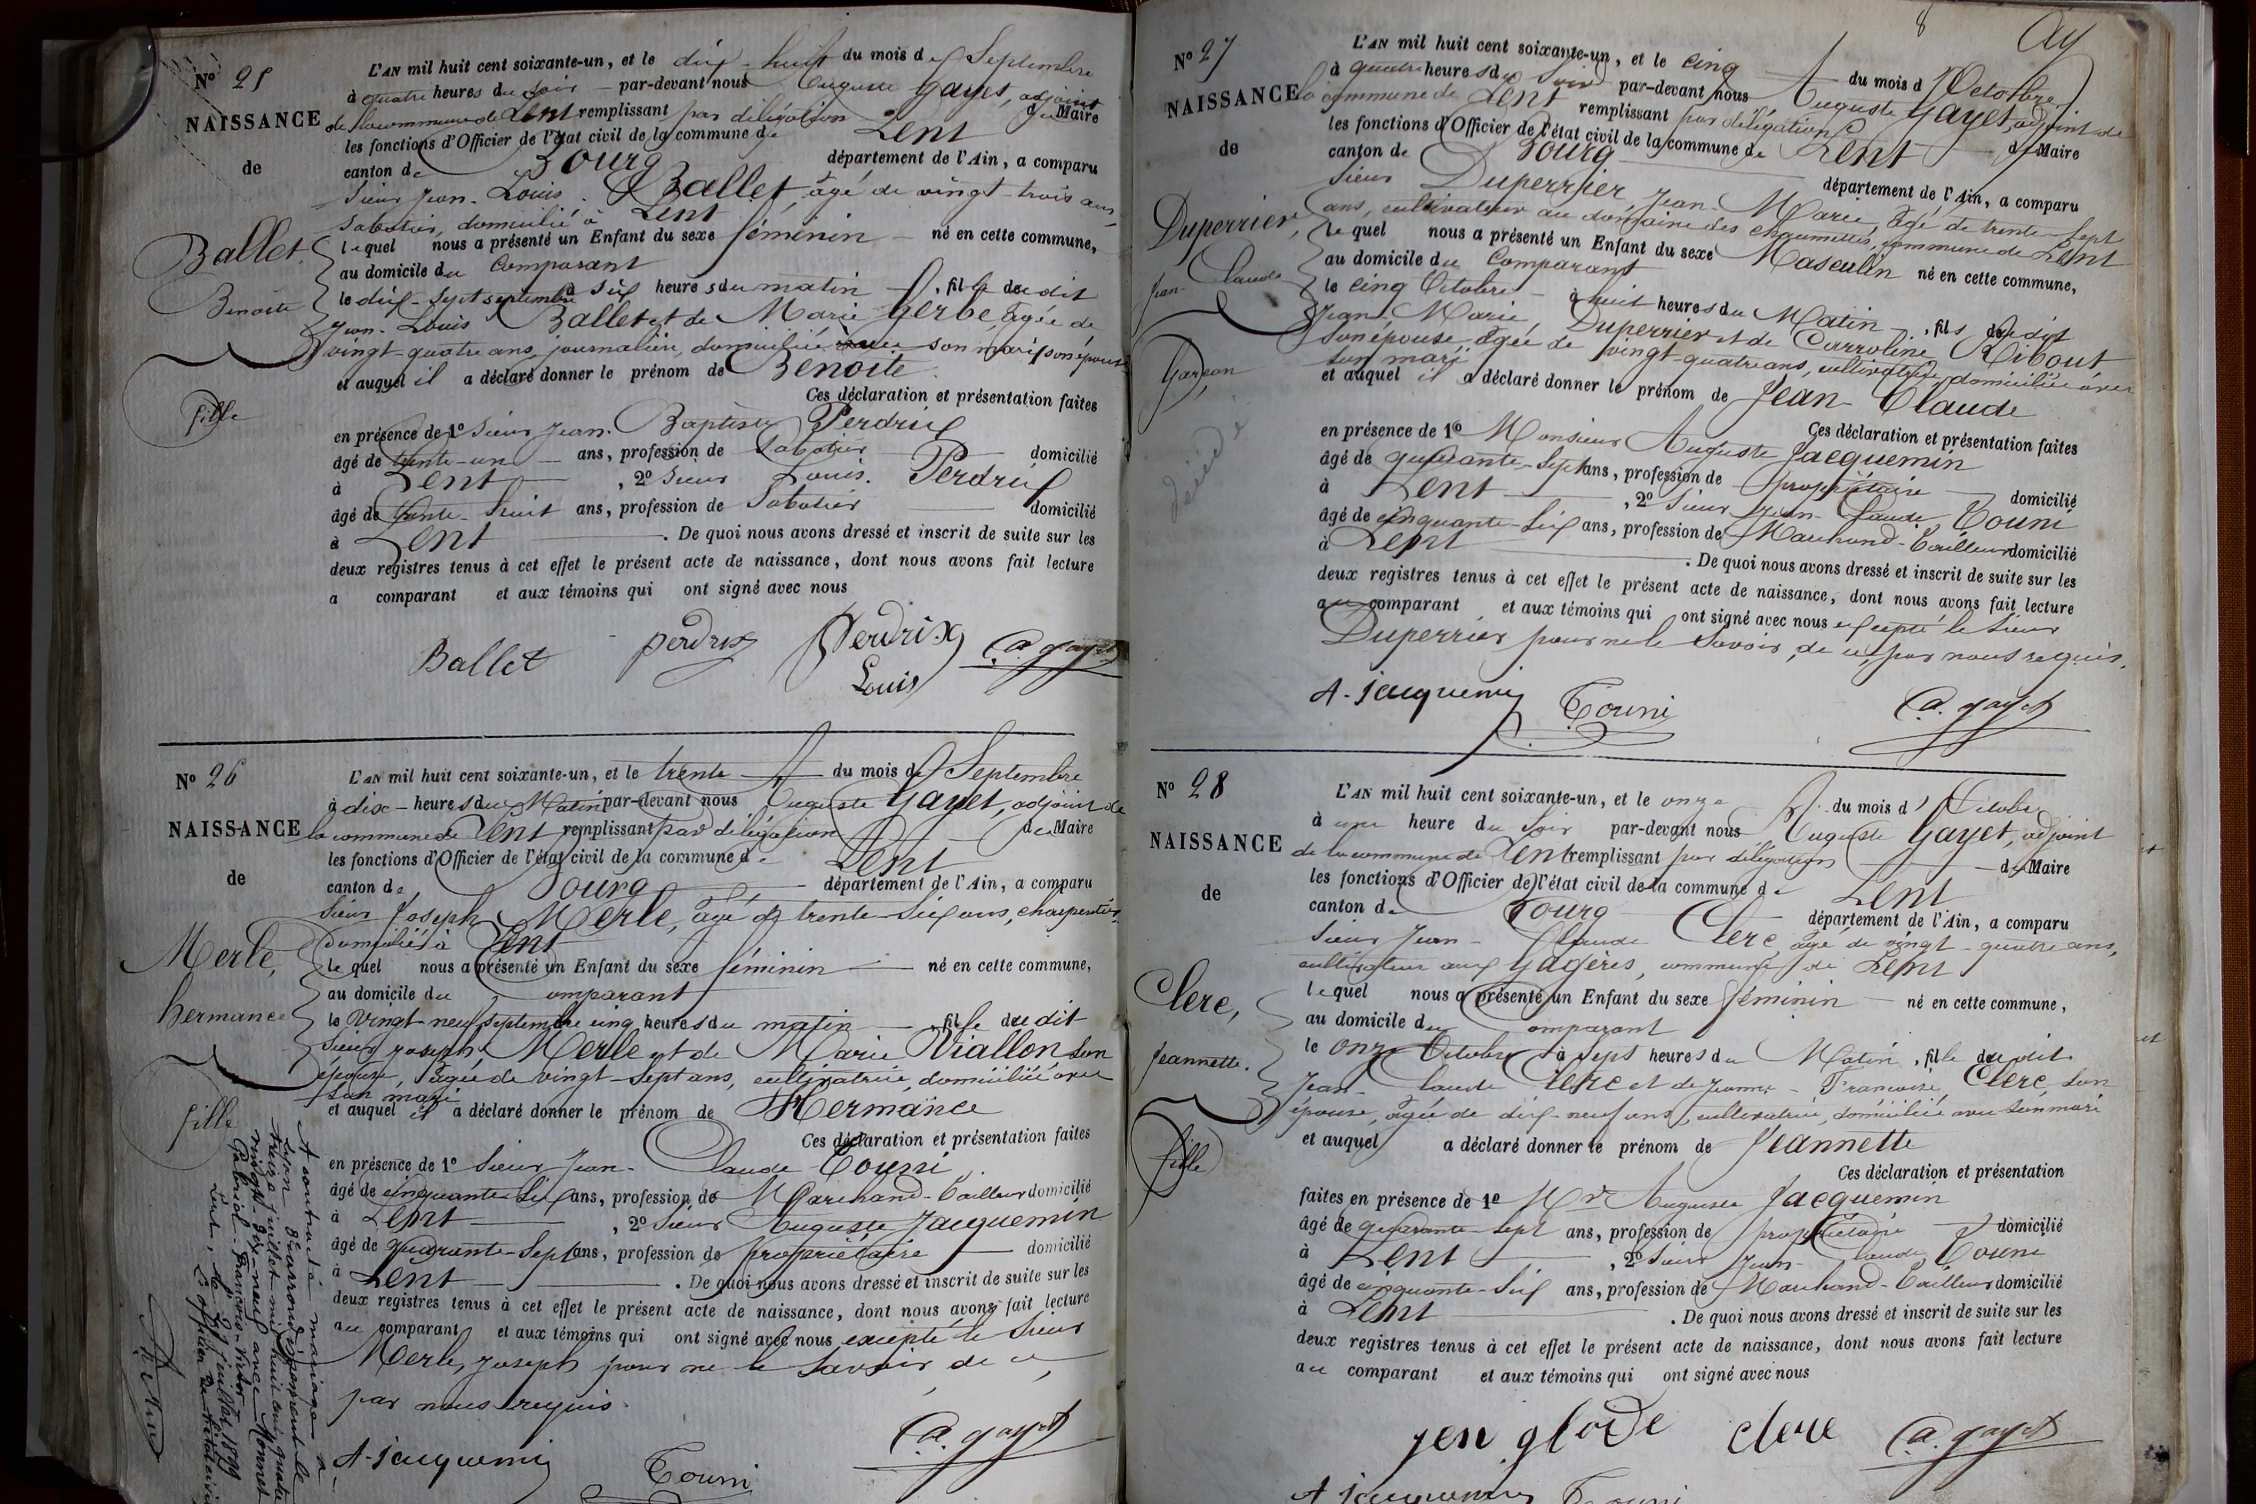 Nº 25
NAISSANCE
de
Ballet.
Benoite
fille
L'AN mil huit cent soixante-un, et le dix-huit du mois de Septembre
à quatre heures du soir par-devant nous Auguste Gayet, adjoint
de la commune de Lent remplissant par délégation du Maire
les fonctions d'Officier de l'état civil de la commune de Lent
canton de Bourg département de l'Ain, a comparu
Sieur Jean-Louis Ballet, âgé de vingt-trois ans,
sabotier, domicilié à Lent
lequel nous a présenté un Enfant du sexe féminin né en cette commune,
au domicile du Comparant
le dix-sept septembre à six heures du matin, fille dudit
Jean-Louis Ballet et de Marie Gerbe, âgée de
vingt-quatre ans, journalière, domiciliée avec son mari, son épouse
et auquel il a déclaré donner le prénom de Benoite.
Ces déclaration et présentation faites
en présence de 1º Sieur Jean-Baptiste Perdrix
âgé de trente-un ans, profession de Sabotier domicilié
à Lent, 2º Sieur Louis Perdrix
âgé de trente-huit ans, profession de Sabotier domicilié
à Lent. De quoi nous avons dressé et inscrit de suite sur les
deux registres tenus à cet effet le présent acte de naissance, dont nous avons fait lecture
a comparant et aux témoins qui ont signé avec nous
Ballet perdrix Perdrix Louis A. gayet
Nº 26
NAISSANCE
de
Merle,
hermance
fille
L'AN mil huit cent soixante-un, et le trente du mois de Septembre
à dix heures du Matin par-devant nous Auguste Gayet, adjoint de
la commune de Lent remplissant par délégation du Maire
les fonctions d'Officier de l'état civil de la commune de Lent
canton de Bourg département de l'Ain, a comparu
Sieur Joseph Merle, âgé de trente-six ans, charpentier,
domicilié à Lent
lequel nous a présenté un Enfant du sexe féminin né en cette commune,
au domicile du Comparant
le vingt-neuf septembre cinq heures du matin, fille dudit
Sieur Joseph Merle et de Marie Viallon son
épouse, âgée de vingt-sept ans, cultivatrice, domiciliée avec
son mari
et auquel il a déclaré donner le prénom de Hermance
Ces déclaration et présentation faites
en présence de 1º Sieur Jean-Claude Touni
âgé de cinquante-six ans, profession de Marchand-Tailleur domicilié
à Lent, 2º Sieur Auguste Jacquemin
âgé de quarante-sept ans, profession de propriétaire domicilié
à Lent. De quoi nous avons dressé et inscrit de suite sur les
deux registres tenus à cet effet le présent acte de naissance, dont nous avons fait lecture
au comparant et aux témoins qui ont signé avec nous excepté le Sieur
Merle, Joseph pour ne le savoir de ce,
par nous requis.
A. jacquemin Touni A. gayet
A contracté mariage à
Lyon 3e arrondissement le
treize juillet mil huit cent quatre
vingt-dix-neuf avec Monnet
Gabriel-François-Victor
Lent, le juillet 1899
L'officier de l'état civil
Nº 27
NAISSANCE
de
Duperrier,
Jean-Claude
Garçon
décédé
8
L'AN mil huit cent soixante-un, et le cinq du mois d'Octobre
à quatre heures du soir par-devant nous Auguste Gayet, adjoint de
la commune de Lent remplissant par délégation du Maire
les fonctions d'Officier de l'état civil de la commune de Lent
canton de Bourg département de l'Ain, a comparu
Sieur Duperrier, Jean-Marie, âgé de trente-sept
ans, cultivateur au domaine des chaumettes, commune de Lent
lequel nous a présenté un Enfant du sexe Masculin né en cette commune,
au domicile du Comparant
le cinq Octobre à huit heures du Matin, fils dudit
Jean-Marie Duperrier et de Carroline Ribout
son épouse âgée de vingt-quatre ans, cultivatrice, domiciliée avec
son mari
et auquel il a déclaré donner le prénom de Jean-Claude
Ces déclaration et présentation faites
en présence de 1º Monsieur Auguste Jacquemin
âgé de quarante-sept ans, profession de propriétaire domicilié
à Lent, 2º Sieur Jean-Claude Touni
âgé de cinquante-six ans, profession de Marchand-Tailleur domicilié
à Lent. De quoi nous avons dressé et inscrit de suite sur les
deux registres tenus à cet effet le présent acte de naissance, dont nous avons fait lecture
au comparant et aux témoins qui ont signé avec nous excepté le Sieur
Duperrier pour ne le savoir, de ce, par nous requis.
A. jacquemin Touni A. gayet
Nº 28
NAISSANCE
de
Clerc,
Jeannette.
fille
L'AN mil huit cent soixante-un, et le onze du mois d'Octobre
à une heure du soir par-devant nous Auguste Gayet, adjoint
de la commune de Lent remplissant par délégation du Maire
les fonctions d'Officier de l'état civil de la commune de Lent
canton de Bourg département de l'Ain, a comparu
Sieur Jean-Claude Clerc âgé de vingt-quatre ans,
cultivateur aux Gagères, commune de Lent
lequel nous a présenté un Enfant du sexe féminin né en cette commune,
au domicile du Comparant
le onze Octobre à sept heures du Matin, fille dudit
Jean-Claude Clerc et de Jeanne-Francoise Clerc, son
épouse, âgée de dix-neuf ans, cultivatrice, domiciliée avec son mari
et auquel a déclaré donner le prénom de Jeannette
Ces déclaration et présentation
faites en présence de 1º Mr Auguste Jacquemin
âgé de quarante-sept ans, profession de propriétaire domicilié
à Lent, 2º Sieur Jean-Claude Touni
âgé de cinquante-six ans, profession de Marchand-Tailleur domicilié
à Lent. De quoi nous avons dressé et inscrit de suite sur les
deux registres tenus à cet effet le présent acte de naissance, dont nous avons fait lecture
au comparant et aux témoins qui ont signé avec nous
jen glode clere A. gayet
A jacquemin Touni